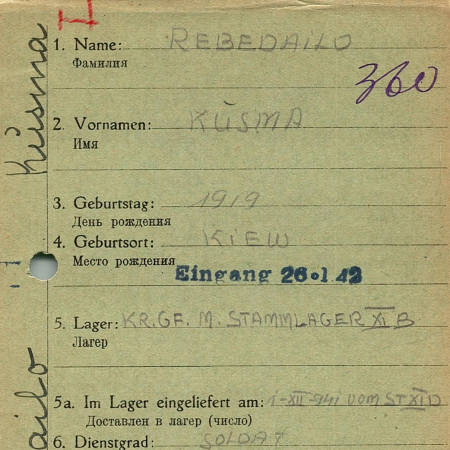 1. Name: REBEDAILO
Фамилия
360
2. Vornamen: KÜSMA
Имя
3. Geburtstag: 1919
День рождения
4. Geburtsort: KIEW
Место рождения
Eingang 26.1 42
5. Lager: KR. GF. M. STAMMLAGER XI B
Лагерь
5a. Im Lager eingeliefert am: 1-XII-941 VOM ST XI D
Доставлен в лагерь (число)
6. Dienstgrad: SOLDAT
Küsma
ailo